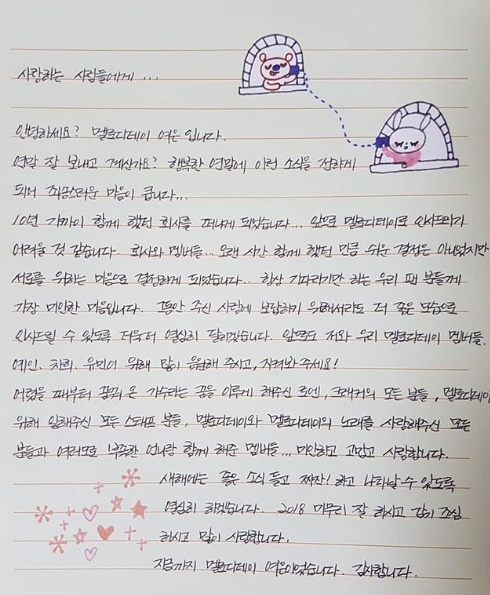 사랑하는 사람들에게 ...
안녕하세요? 멜로디데이 여은 입니다.
연말 잘 보내고 계신가요? 행복한 연말에 이런 소식을 전하게
되어 죄송스러운 마음이 큽니다...
10년 가까이 함께 했던 회사를 떠나게 되었습니다... 앞으로 멜로디데이로 인사드리기
어려울 것 같습니다. 회사와 멤버들.. 오랜 시간 함께 했던 만큼 쉬운 결정은 아니었지만
서로를 위하는 마음으로 결정하게 되었습니다.. 항상 기다리기만 하는 우리 팬 분들께
가장 미안한 마음입니다. 그동안 주신 사랑에 보답하기 위해서라도 더 좋은 모습으로
인사드릴 수 있도록 더욱더 열심히 달리겠습니다. 앞으로도 저와 우리 멜로디데이 멤버들,
예인. 차희. 유민이 위해 많이 응원해 주시고, 지켜봐 주세요!
어렸을 때부터 꿈꿔 온 가수라는 꿈을 이루게 해주신 로엔, 크래커의 모든 분들, 멜로디데이
위해 일해주신 모든 스태프 분들, 멜로디데이와 멜로디데이의 노래를 사랑해주신 모든
분들과 여러모로 부족한 언니랑 함께 해준 멤버들... 미안하고 고맙고 사랑합니다.
새해에는 좋은 소식 들고 짜잔! 하고 나타날 수 있도록
열심히 하겠습니다. 2018 마무리 잘 하시고 감기 조심
하시고 많이 사랑합니다.
지금까지 멜로디데이 여은이었습니다. 감사합니다.